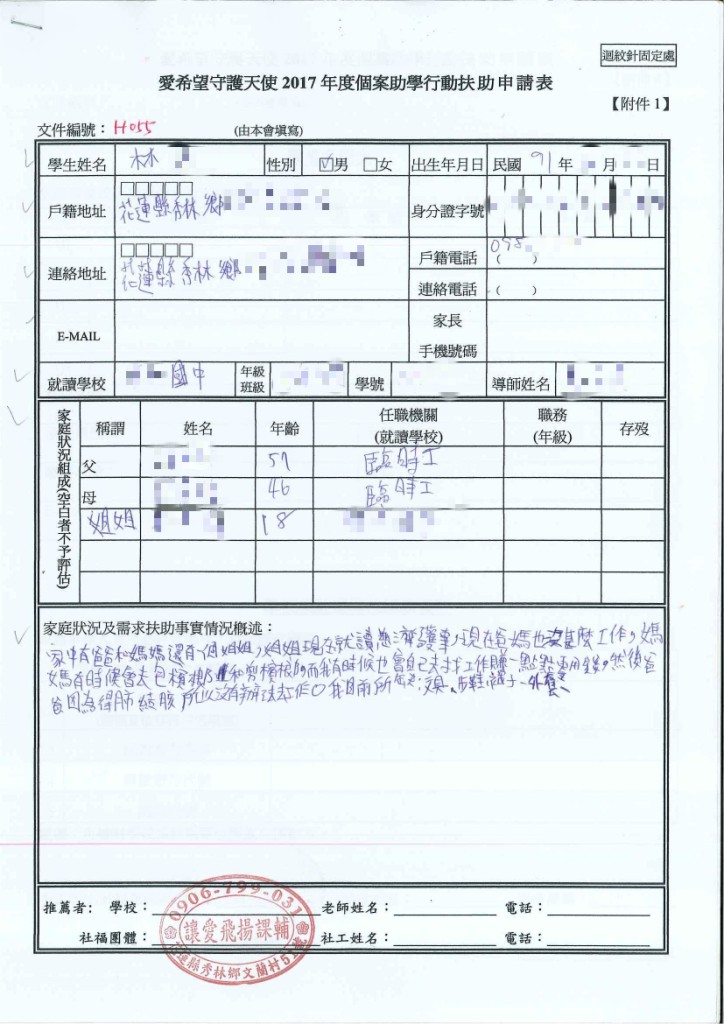 迴紋針固定處
愛希望守護天使 2017 年度個案助學行動扶助申請表
【附件 1】
文件編號：H055 (由本會填寫)
學生姓名 林 性別 ☑男 □女 出生年月日 民國 91 年 月 日
戶籍地址 □□□□□ 花蓮縣秀林鄉 身分證字號
連絡地址 □□□□□ 花蓮縣秀林鄉 戶籍電話 ( )
連絡電話 ( )
E-MAIL 家長
手機號碼
就讀學校 國中 年級
班級 學號 導師姓名
家庭狀況組成(空白者不予評估)
稱謂 姓名 年齡 任職機關
(就讀學校) 職務
(年級) 存歿
父 57 臨時工
母 46 臨時工
姐姐 18
家庭狀況及需求扶助事實情況概述：
家中有爸爸和媽媽還有一個姐姐，姐姐現在就讀慈濟護專，現在爸媽也沒怎麼工作，媽
媽有時候會去包檳榔和剪檳榔，而我有時候也會自己去找工作賺一點點零用錢，然後爸
爸因為得肺結核 所以沒有辦法工作。我目前所
推薦者： 學校： 老師姓名： 電話：
社福團體： 社工姓名： 電話：
0906-799-031
讓愛飛揚課輔
花蓮縣秀林鄉文蘭村